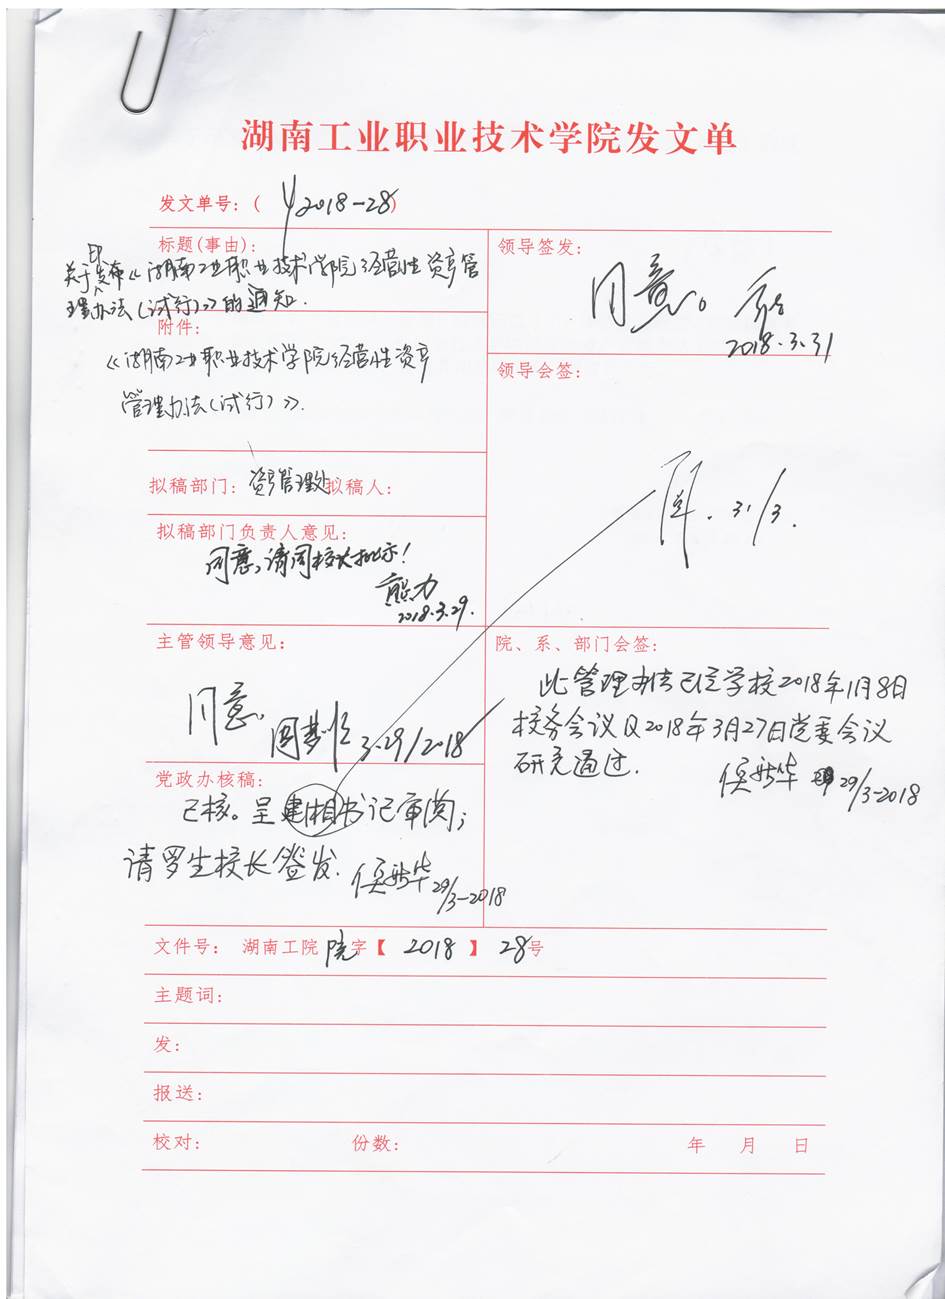 湖南工业职业技术学院发文单
发文单号：( 2018-28)
标题(事由)：
关于印发布《湖南工业职业技术学院经营性资产管
理办法(试行)》的通知.
附件：
《湖南工业职业技术学院经营性资产
管理办法(试行)》.
拟稿部门：资产管理处 拟稿人：
拟稿部门负责人意见：
同意,请周校长批示!
熊力
2018.3.29.
主管领导意见：
同意.
3.29/2018
党政办核稿：
已核。呈建湘书记审阅；
请罗生校长签发.
侯新华 29/3-2018
领导签发：
同意。
2018.3.31
领导会签：
31/3.
院、系、部门会签：
此管理办法已经学校2018年1月8日
校务会议及2018年3月27日党委会议
研究通过.
侯新华 29/3-2018
文件号： 湖南工院 院字【 2018 】 28号
主题词：
发：
报送：
校对： 份数： 年 月 日